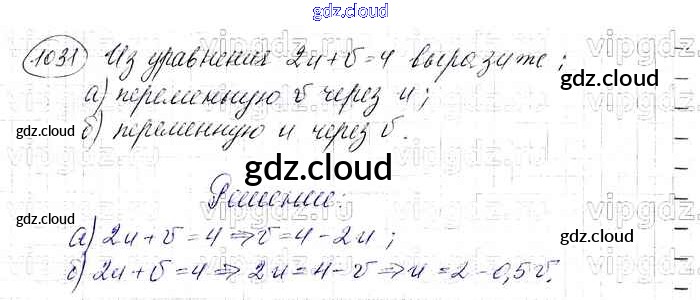 gdz.cloud
1031 Из уравнения 2u+v=4 выразите;
а) переменную v через u;
gdz.cloud gdz.cloud
б) переменную u через v.
gdz.cloud
Решение:
а) 2u+v=4⇒v=4-2u;
gdz.cloud gdz.cloud
б) 2u+v=4⇒2u=4-v⇒u=2-0,5v.